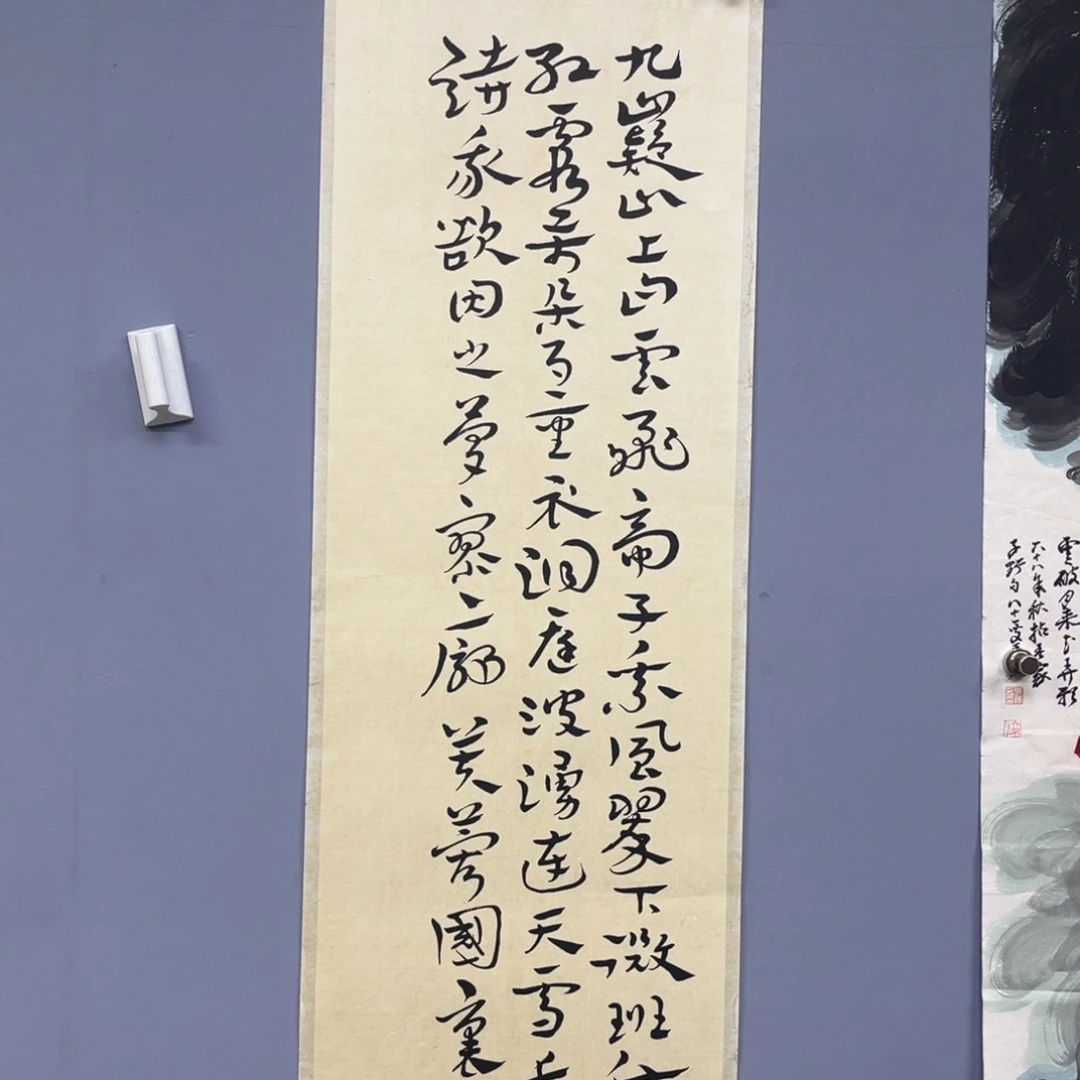 九嶷山上白雲飛帝子乘風翠下微班竹
紅霞萬朵百重衣洞庭波湧連天雪長
詩我欲因之夢寥廓芙蓉國裏
雲破月來花弄影
六十八年秋拈
子野句八十叟